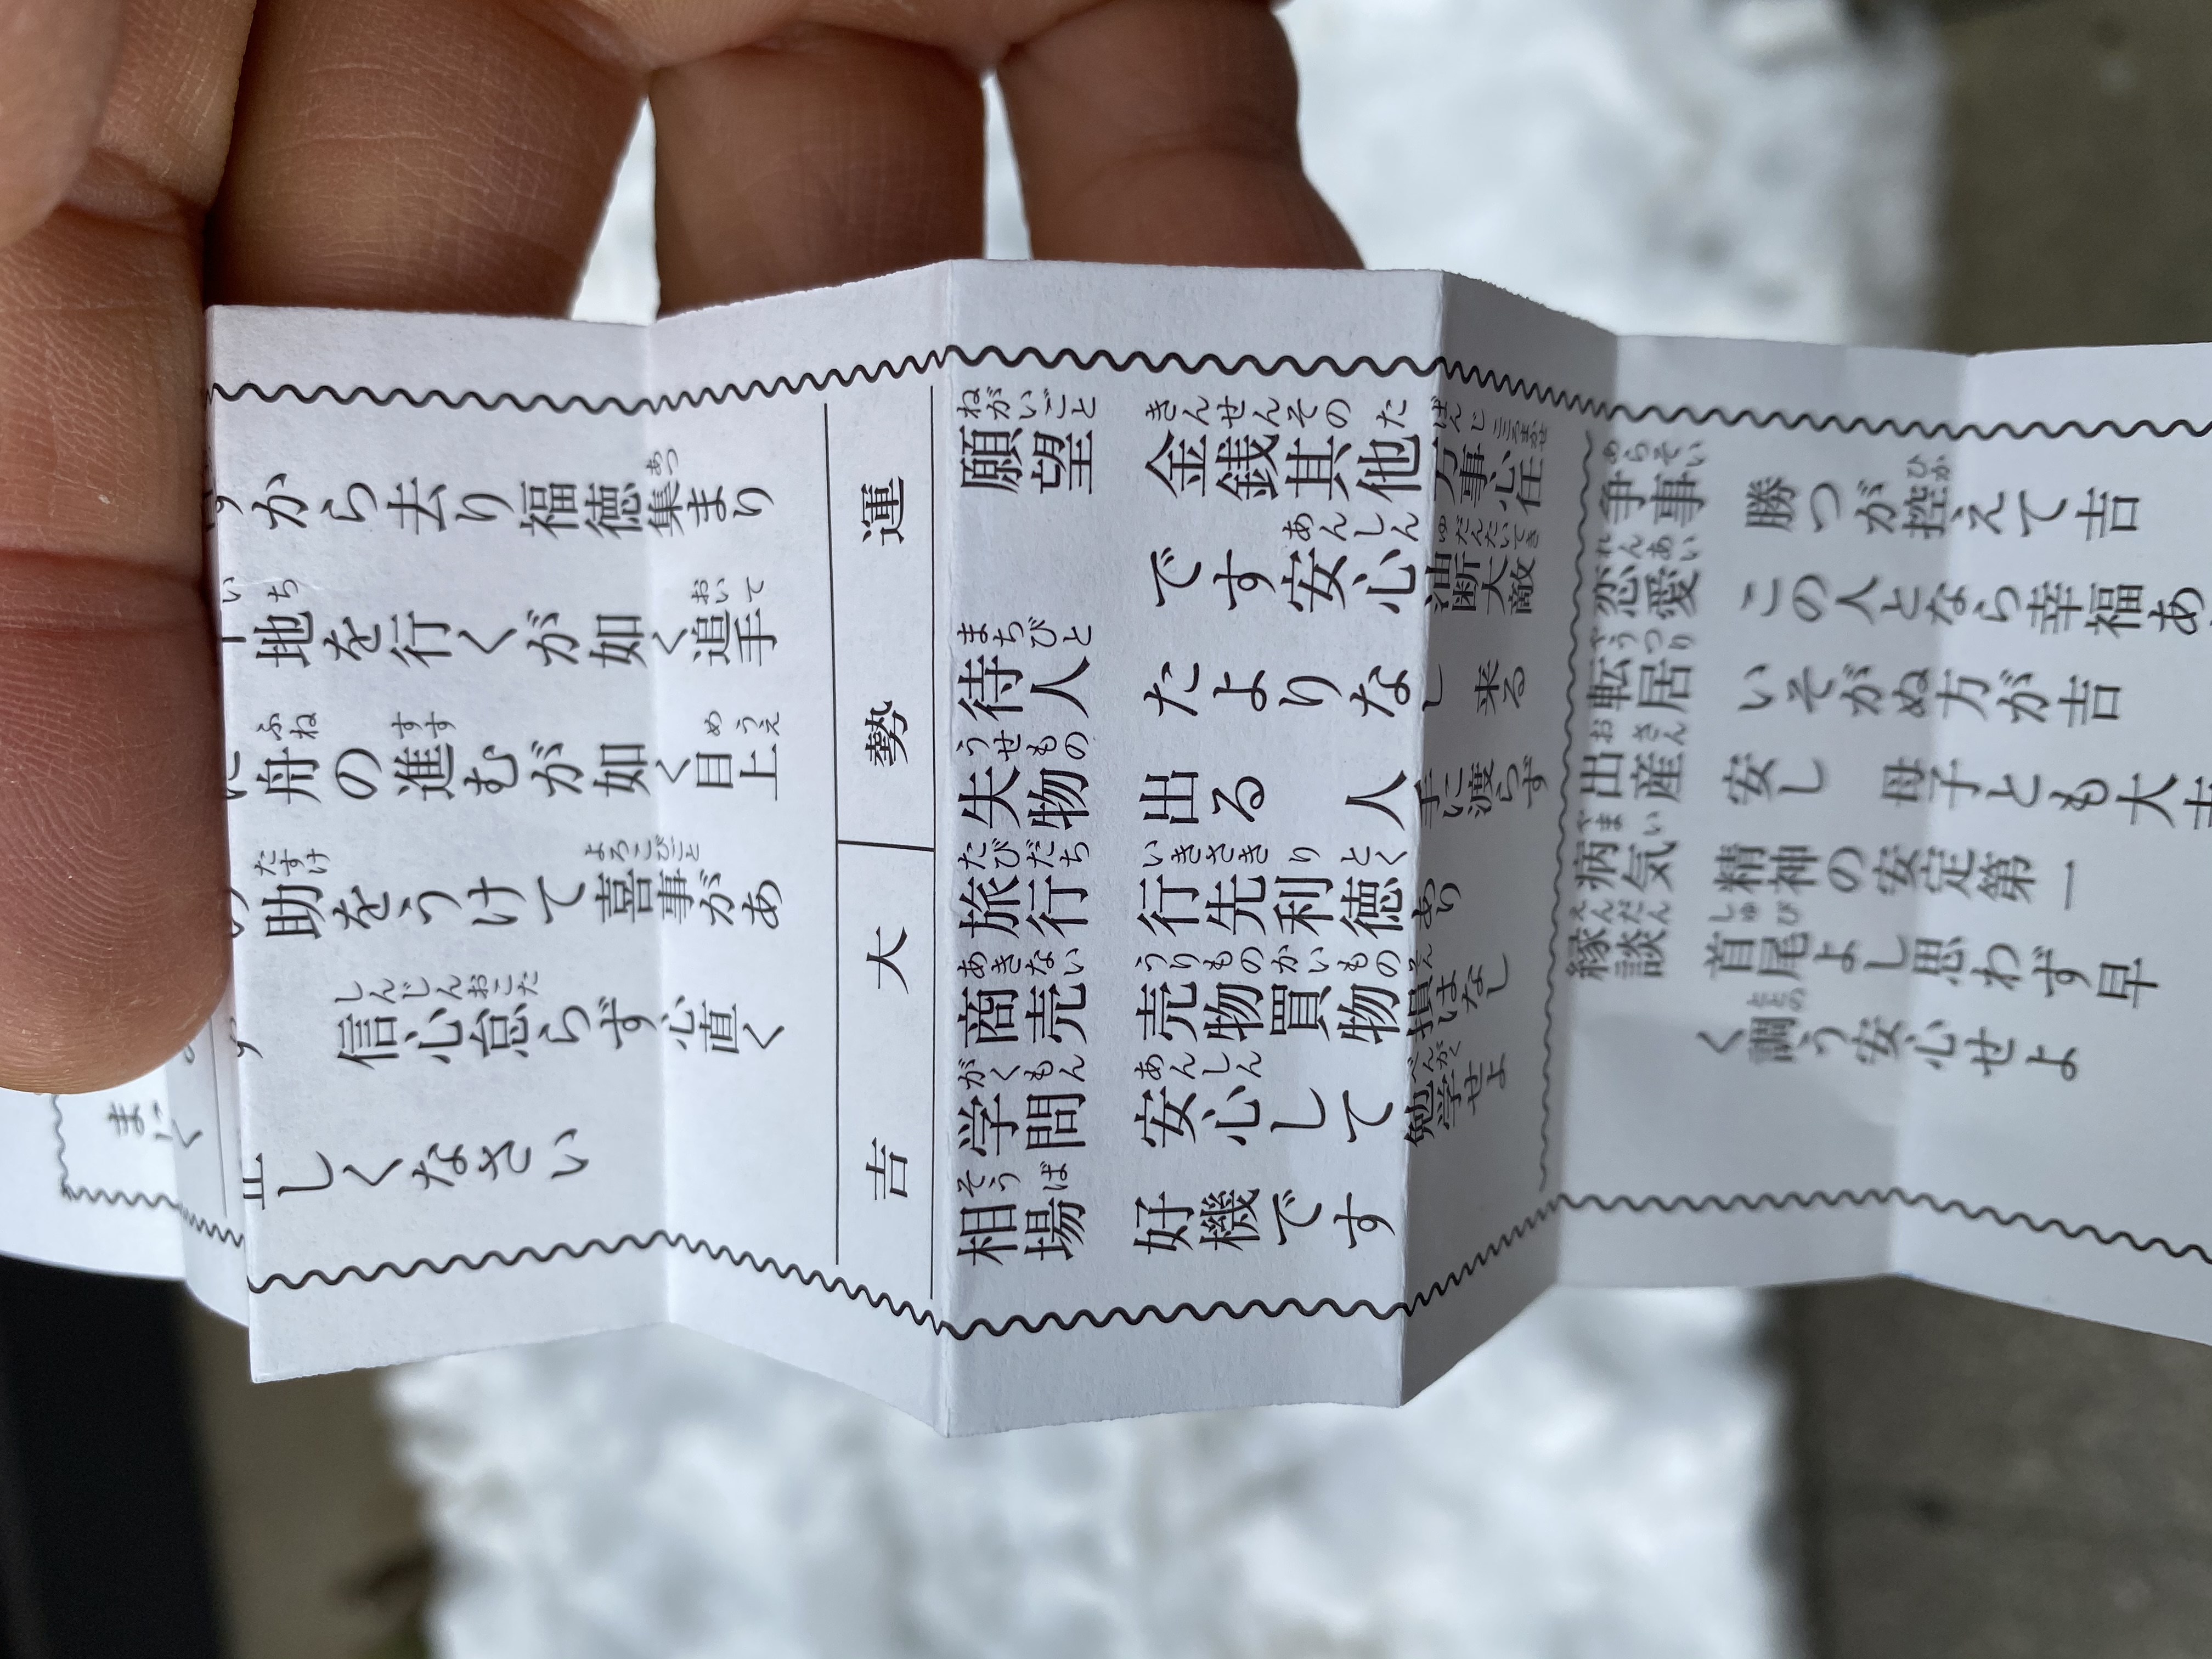 から去り福徳集まり
地を行くが如く追手
に舟の進むが如く目上
の助をうけて喜事があ
信心怠らず心直く
正しくなさい
運勢 大吉
願望 金銭其他万事心任
です安心油断大敵
待人 たよりなし 来る
失物 出る 人手に渡らず
旅行 行先利徳あり
商売 売物買物損はなし
学問 安心して勉学せよ
相場 好機です
争事 勝つが控えて吉
恋愛 この人となら幸福あ
転居 いそがぬ方が吉
出産 安し 母子とも大
病気 精神の安定第一
縁談 首尾よし思わず早
く調う安心せよ